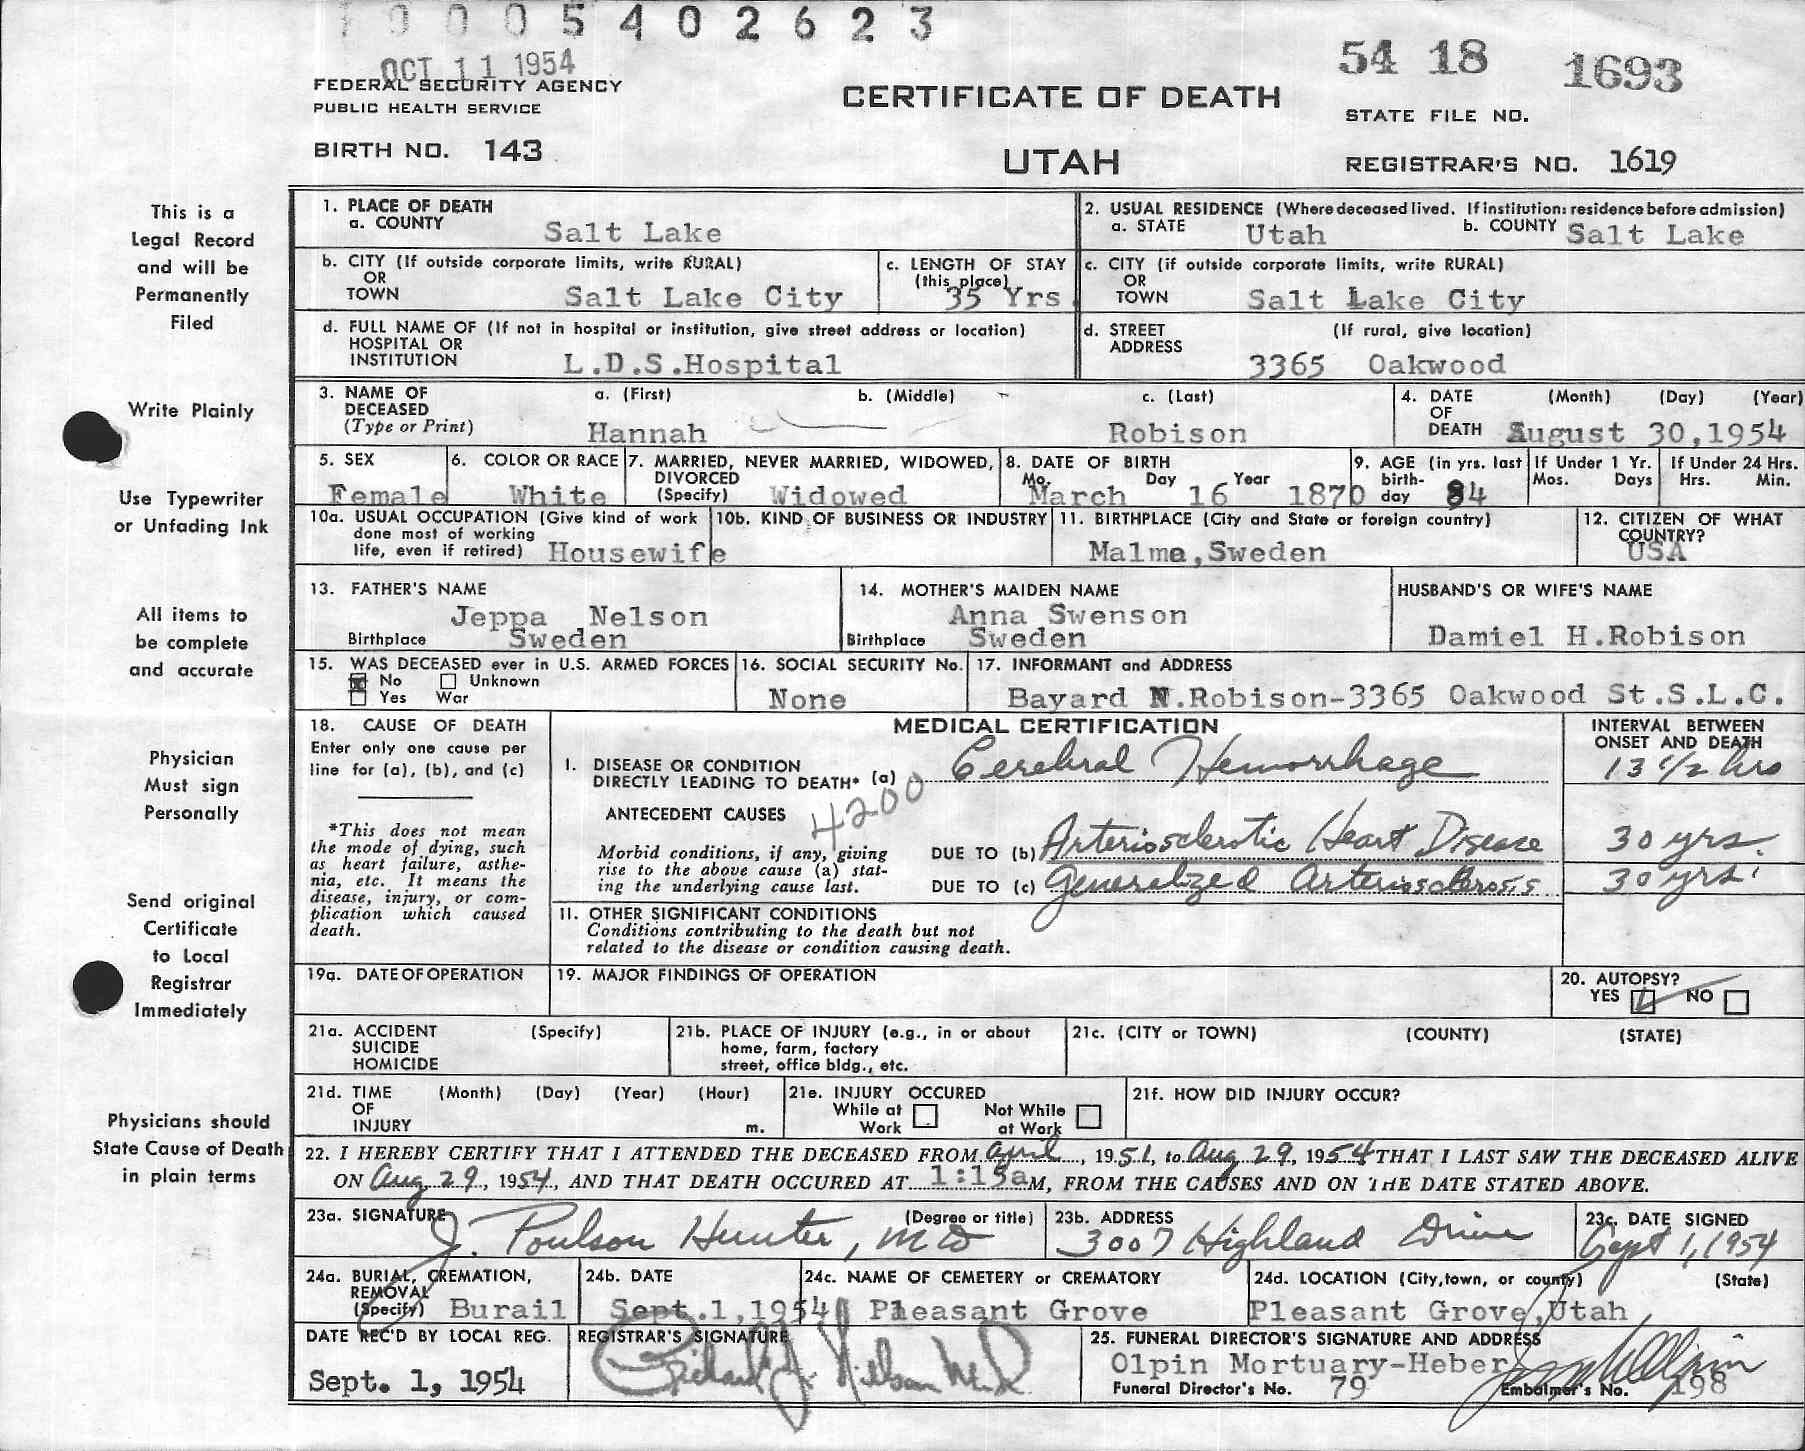 19005402623
OCT 11 1954
54 18 1693
FEDERAL SECURITY AGENCY
PUBLIC HEALTH SERVICE
CERTIFICATE OF DEATH
STATE FILE NO.
BIRTH NO. 143
UTAH
REGISTRAR'S NO. 1619
This is a
Legal Record
and will be
Permanently
Filed
Write Plainly
Use Typewriter
or Unfading Ink
All items to
be complete
and accurate
Physician
Must sign
Personally
Send original
Certificate
to Local
Registrar
Immediately
Physicians should
State Cause of Death
in plain terms
1. PLACE OF DEATH
a. COUNTY Salt Lake
2. USUAL RESIDENCE (Where deceased lived. If institution: residence before admission)
a. STATE Utah b. COUNTY Salt Lake
b. CITY (If outside corporate limits, write RURAL)
OR
TOWN Salt Lake City
c. LENGTH OF STAY
(this place)
35 Yrs
c. CITY (if outside corporate limits, write RURAL)
OR
TOWN Salt Lake City
d. FULL NAME OF (If not in hospital or institution, give street address or location)
HOSPITAL OR
INSTITUTION L.D.S.Hospital
d. STREET (If rural, give location)
ADDRESS
3365 Oakwood
3. NAME OF a. (First) b. (Middle) c. (Last)
DECEASED
(Type or Print) Hannah Robison
4. DATE (Month) (Day) (Year)
OF
DEATH August 30,1954
5. SEX
Female
6. COLOR OR RACE
White
7. MARRIED, NEVER MARRIED, WIDOWED,
DIVORCED
(Specify) Widowed
8. DATE OF BIRTH
Mo. Day Year
March 16 1870
9. AGE (in yrs. last
birth-
day 84
If Under 1 Yr.
Mos. Days
If Under 24 Hrs.
Hrs. Min.
10a. USUAL OCCUPATION (Give kind of work
done most of working
life, even if retired) Housewife
10b. KIND OF BUSINESS OR INDUSTRY
11. BIRTHPLACE (City and State or foreign country)
Malma,Sweden
12. CITIZEN OF WHAT
COUNTRY?
USA
13. FATHER'S NAME
Jeppa Nelson
Birthplace Sweden
14. MOTHER'S MAIDEN NAME
Anna Swenson
Birthplace Sweden
HUSBAND'S OR WIFE'S NAME
Damiel H.Robison
15. WAS DECEASED ever in U.S. ARMED FORCES
No Unknown
Yes War
16. SOCIAL SECURITY No.
None
17. INFORMANT and ADDRESS
Bayard N.Robison-3365 Oakwood St.S.L.C.
18. CAUSE OF DEATH
Enter only one cause per
line for (a), (b), and (c)
*This does not mean
the mode of dying, such
as heart failure, asthe-
nia, etc. It means the
disease, injury, or com-
plication which caused
death.
MEDICAL CERTIFICATION
INTERVAL BETWEEN
ONSET AND DEATH
I. DISEASE OR CONDITION
DIRECTLY LEADING TO DEATH* (a) Cerebral Hemorrhage 13 1/2 hrs
ANTECEDENT CAUSES 4200
Morbid conditions, if any, giving
rise to the above cause (a) stat-
ing the underlying cause last.
DUE TO (b) Arteriosclerotic Heart Disease 30 yrs.
DUE TO (c) Generalized Arteriosclerosis 30 yrs.
II. OTHER SIGNIFICANT CONDITIONS
Conditions contributing to the death but not
related to the disease or condition causing death.
19a. DATE OF OPERATION
19. MAJOR FINDINGS OF OPERATION
20. AUTOPSY?
YES NO
21a. ACCIDENT (Specify)
SUICIDE
HOMICIDE
21b. PLACE OF INJURY (e.g., in or about
home, farm, factory
street, office bldg., etc.
21c. (CITY or TOWN) (COUNTY) (STATE)
21d. TIME (Month) (Day) (Year) (Hour)
OF
INJURY m.
21e. INJURY OCCURED
While at Work Not While at Work
21f. HOW DID INJURY OCCUR?
22. I HEREBY CERTIFY THAT I ATTENDED THE DECEASED FROM April, 1951, to Aug 29, 1954 THAT I LAST SAW THE DECEASED ALIVE
ON Aug 29, 1954, AND THAT DEATH OCCURED AT 1:15aM, FROM THE CAUSES AND ON THE DATE STATED ABOVE.
23a. SIGNATURE (Degree or title)
J. Poulson Hunter, MD
23b. ADDRESS
3007 Highland Drive
23c. DATE SIGNED
Sept 1, 1954
24a. BURIAL, CREMATION,
REMOVAL
(Specify) Burail
24b. DATE
Sept.1,1954
24c. NAME OF CEMETERY or CREMATORY
Pleasant Grove
24d. LOCATION (City,town, or county) (State)
Pleasant Grove,Utah
DATE REC'D BY LOCAL REG.
Sept. 1, 1954
REGISTRAR'S SIGNATURE
Richard J. Nilson M.D.
25. FUNERAL DIRECTOR'S SIGNATURE AND ADDRESS
Olpin Mortuary-Heber
Funeral Director's No. 79 Embalmer's No. 198